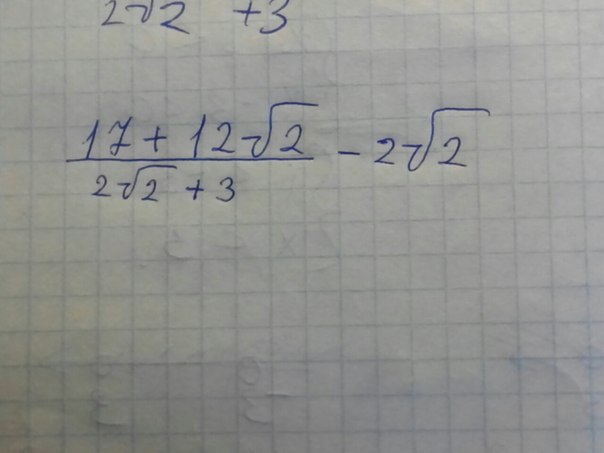 2√2 +3
17 + 12√2 / 2√2 + 3 - 2√2